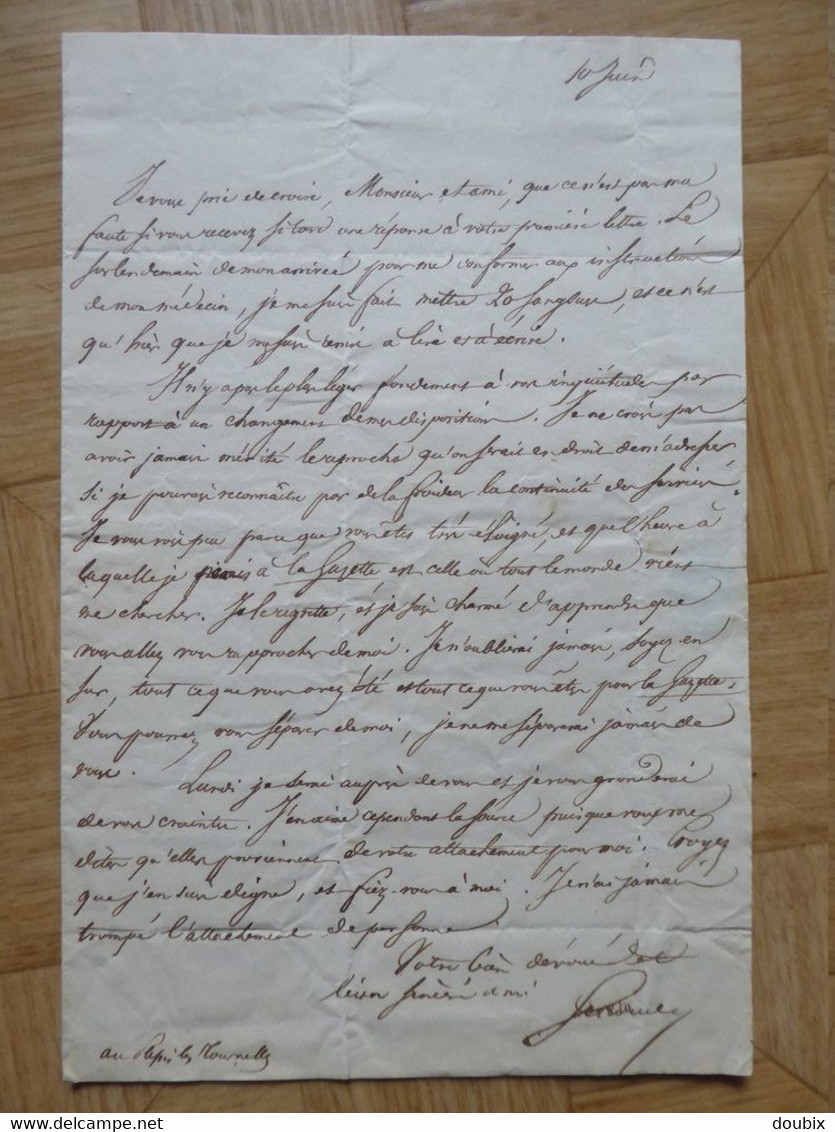 10 Juin
Je vous prie de croire, Monsieur et ami, que ce n'est pas ma
faute si vous recevez si tard une réponse à votre première lettre. Le
surlendemain de mon arrivée pour me conformer aux instructions
de mon médecin, je me suis fait mettre 20 sangsues, et ce n'est
qu'hier que je me suis remis à lire et à écrire.
Il n'y a pas le plus léger fondement à vos inquiétudes par
rapport à un changement de mes dispositions. Je ne crois pas
avoir jamais mérité le reproche qu'on serait en droit de m'adresser
si je pouvais reconnaître par de la froideur la continuité des services.
Je vous vois peu parce que vous êtes très éloigné, et que l'heure à
laquelle je suis à la Gazette est celle où tout le monde vient
me chercher. Je le regrette, et je suis charmé d'apprendre que
vous allez vous rapprocher de moi. Je n'oublierai jamais, soyez en
sur, tout ce que vous avez été et tout ce que vous êtes pour la Gazette.
Vous pourrez vous séparer de moi, je ne me séparerai jamais de
vous.
Lundi je serai auprès de vous et je vous gronderai
de vos craintes. J'en aime cependant la source puisque vous me
dites qu'elles proviennent de votre attachement pour moi. Croyez
que j'en suis digne, et fiez-vous à moi. Je n'ai jamais
trompé l'attachement de personne.
Votre bien dévoué et
bien sincère ami
au Plessis les Tournelles
doubix